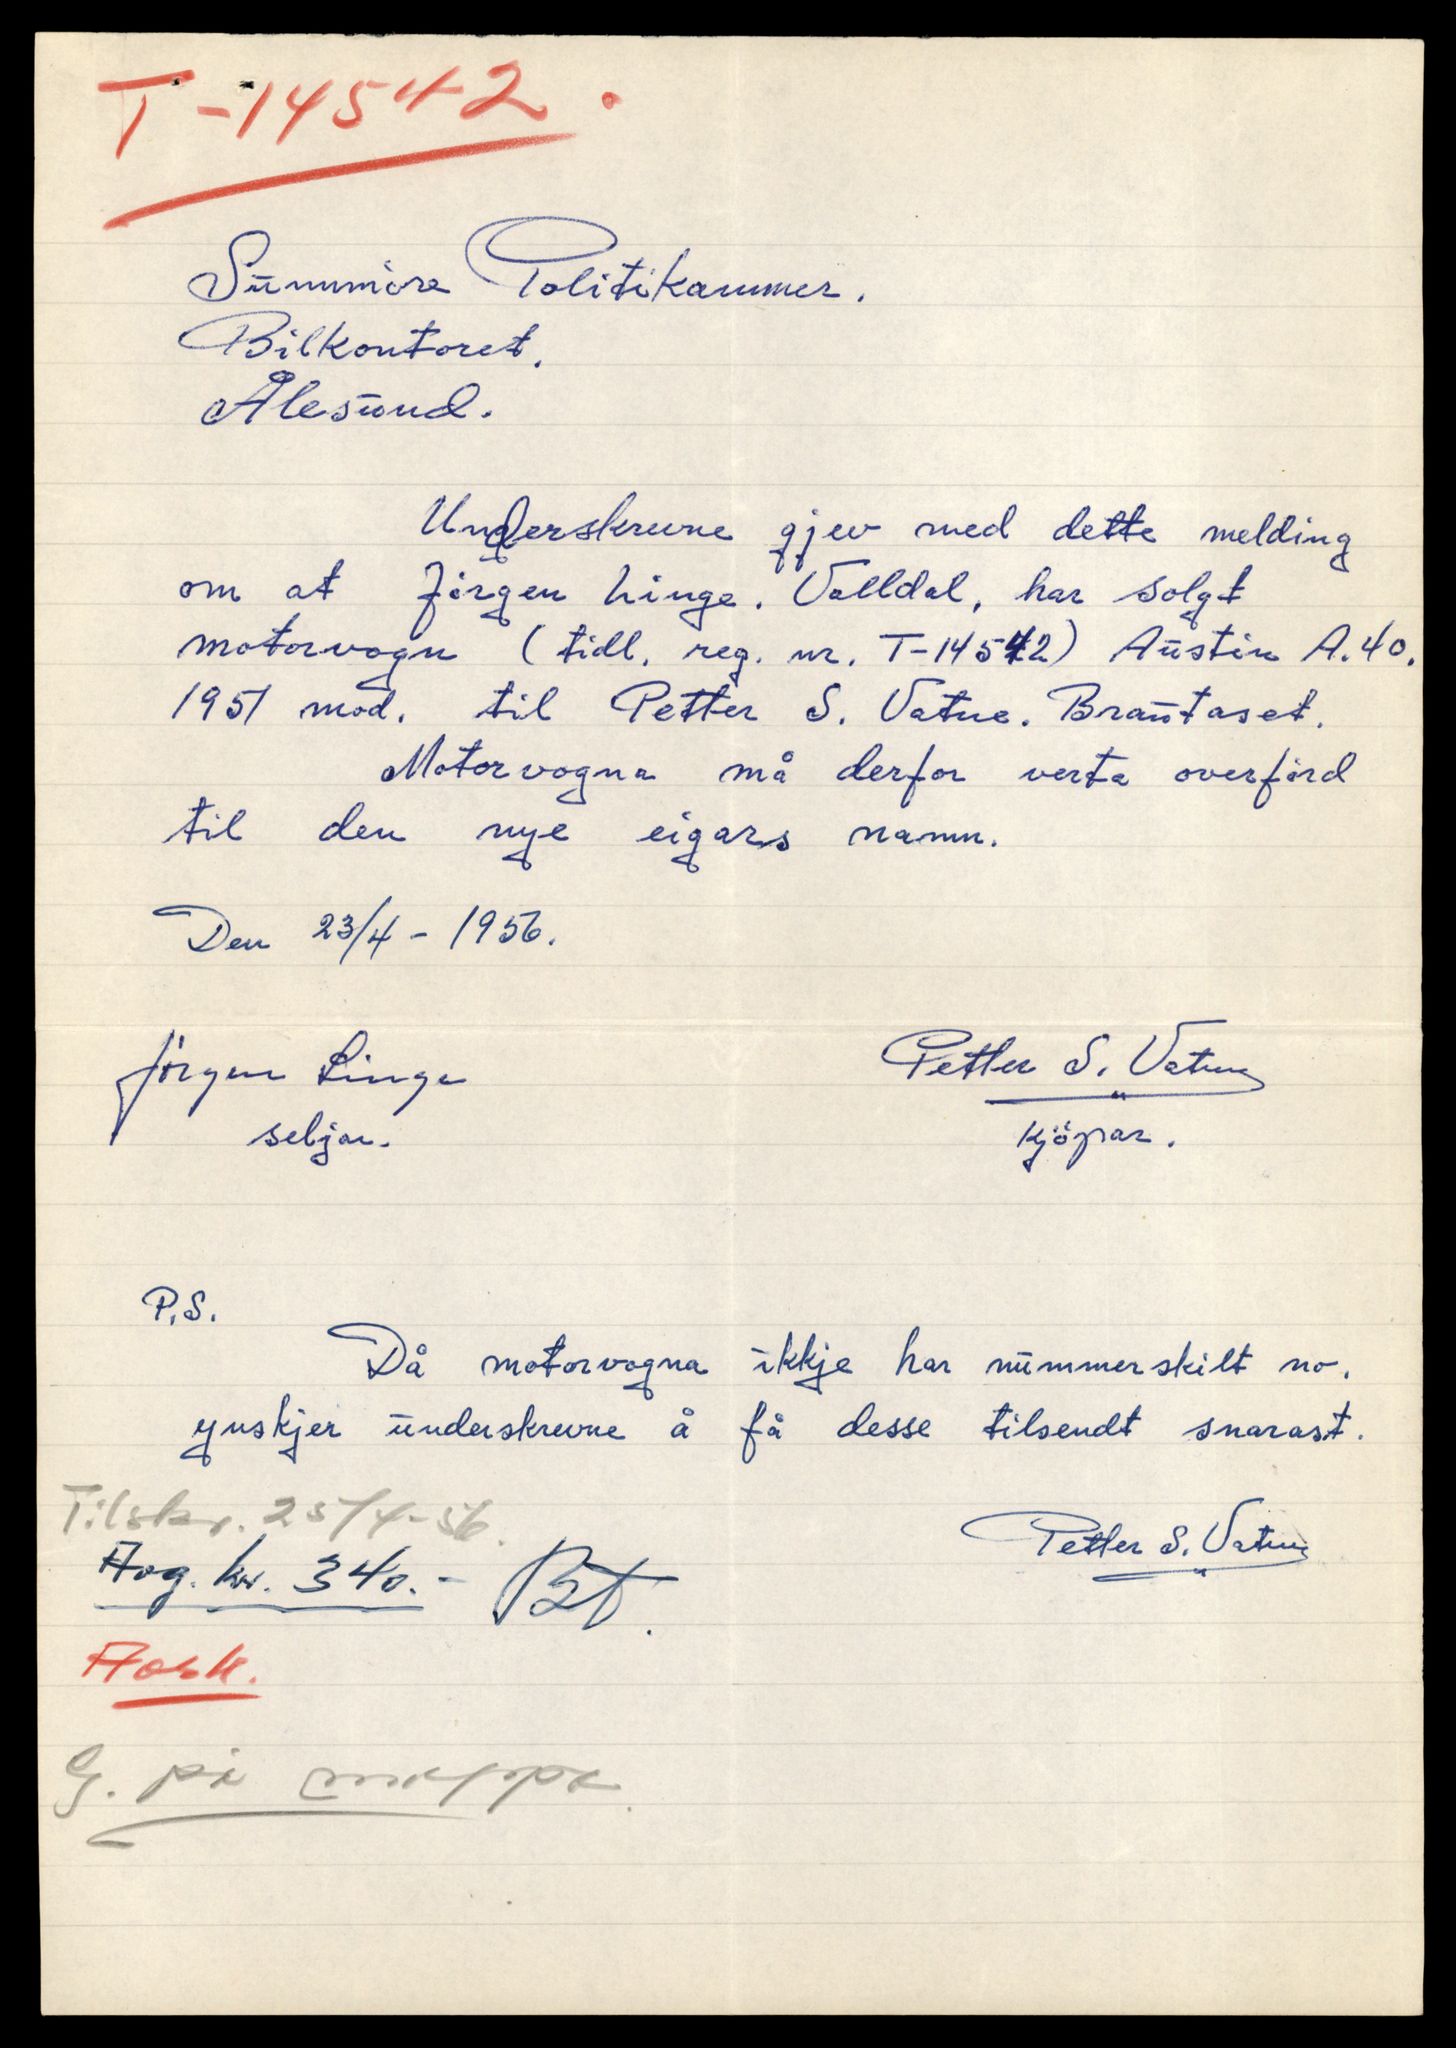 T-14542.
Sunnmöre Politikammer.
Bilkontoret.
Ålesund.
Underskrevne gjev med dette melding
om at Jörgen Linge. Valldal, har solgt
motorvogn (tidl. reg. nr. T-14542) Austin A.40.
1951 mod. til Petter S. Vatne. Brautaset.
Motorvogna må derfor verta overförd
til den nye eigars namn.
Den 23/4 - 1956.
Jörgen Linge
seljar.
Petter S. Vatne
Kjöpar.
P.S.
Då motorvogna ikkje har nummerskilt no,
ynskjer underskrevne å få desse tilsendt snarast.
Petter S. Vatne
Tilskr. 25/4-56.
Avg. kr. 340.-
G. på mappe.